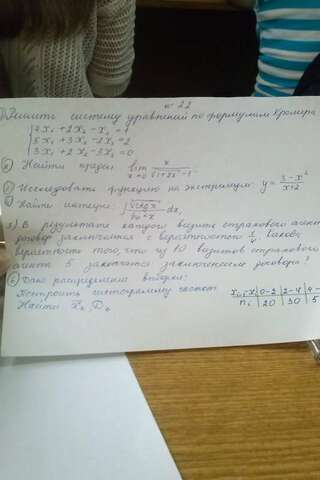 № 22
1) Решить систему уравнений по формулам Крамера
2x₁ + 2x₂ - x₃ = 1
5x₁ + 3x₂ - 2x₃ = 2
3x₁ + 2x₂ - 3x₃ = 0
2) Найти предел lim x→0 x / √1+3x - 1
3) Исследовать функцию на экстремум: y = 3 - x² / x+2
4) Найти интеграл: ∫ dx,
5) В результате каждого визита страхового агента
договор заключается с вероятностью 1/4. Какова
вероятность того, что из 10 визитов страхового
агента 5 закончатся заключением договора?
6) Дано распределение выборки:
Построить гистограмму частот
Найти
0-2 | 2-4 | 4-
nᵢ | 20 | 30 | 5